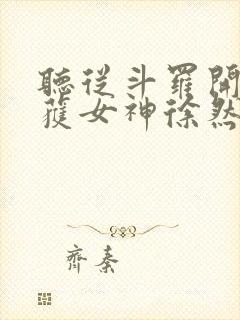 聽從斗羅開
獲女神徐然
齊秦